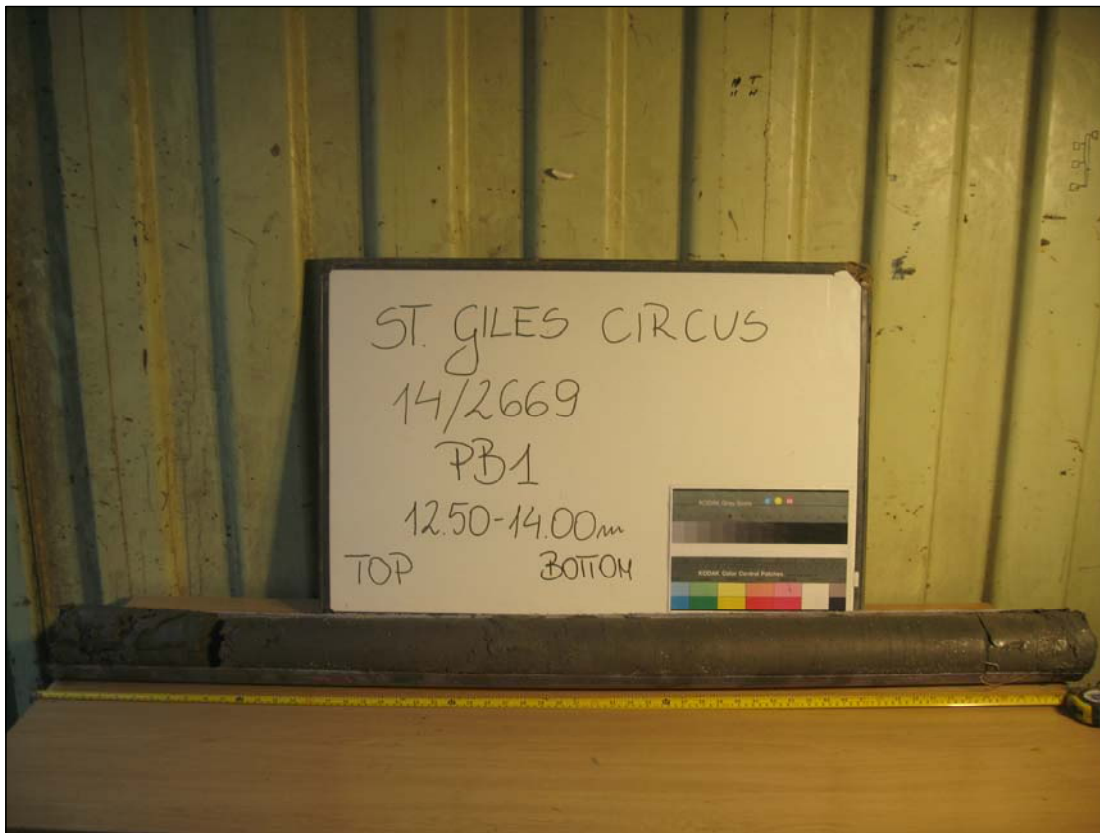 ST. GILES CIRCUS
14/2669
PB1
12.50-14.00m
TOP BOTTOM
KODAK Gray Scale
KODAK Color Control Patches